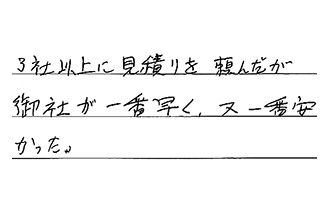 3社以上に見積りを頼んだが
御社が一番早く、又一番安
かった。